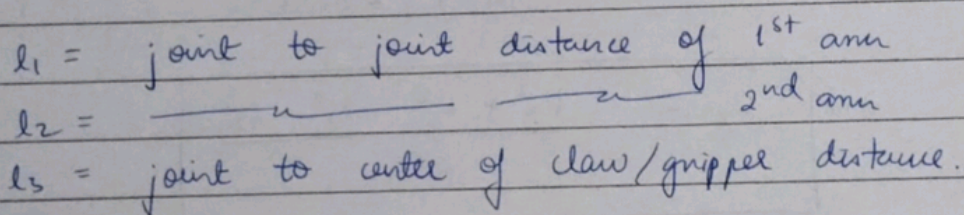 l1 = joint to joint distance of 1st arm
l2 = —〃— —〃— 2nd arm
l3 = joint to center of claw/gripper distance.